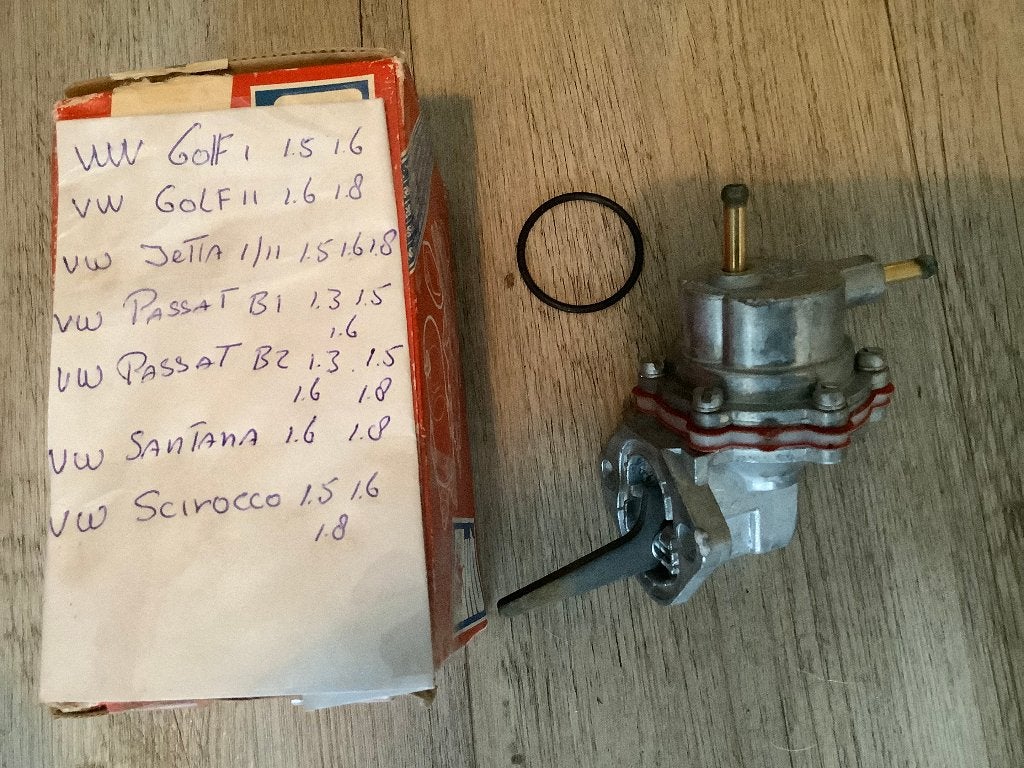 VW Golf I 1.5 1.6
VW GOLF II 1.6 1.8
VW JETTA I/II 1.5 1.6 1.8
VW PASSAT B1 1.3 1.5
1.6
VW PASSAT B2 1.3 1.5
1.6 1.8
VW SANTANA 1.6 1.8
VW Scirocco 1.5 1.6
1.8